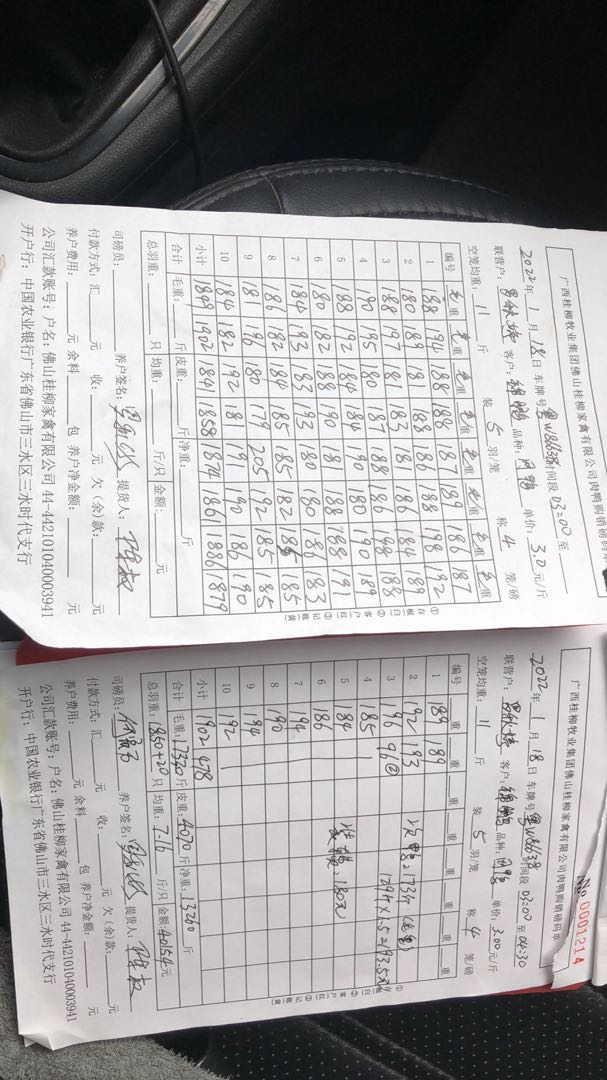 广西桂柳牧业集团佛山桂柳家禽有限公司肉鸭购销磅码单
2022年1月18日 车牌号 时间段03:00至
联营户: 客户: 品种: 单价:3.0元/斤
空笼均重:11斤 装5羽/笼 称4笼/磅
编号 毛重 毛重 毛重 毛重 毛重 毛重 毛重 毛重
1 188 194 188 188 187 189 186 187
2 180 189 181 188 186 188 198 192
3 188 197 181 183 181 186 184 189
4 190 195 180 187 188 186 198 188
5 188 192 184 184 190 180 190 189
6 180 182 188 190 188 188 188 191
7 184 193 183 193 180 180 183
8 186 182 184 185 185 182 186 185
9 181 196 180 179 205 192 185 185
10 184 182 192 181 191 190 186 190
小计 1849 1902 1841 1858 1874 1861 1886 1879
合计 毛重: 斤 皮重: 斤 净重: 斤
总羽重: 只 均重: 斤/只 金额: 元
司磅员: 养户签名: 提货人:
付款方式:汇 元 收: 元 欠(余)款: 元
养户费用: 元 余料 包 养户净金额: 元
公司汇款账号:户名:佛山桂柳家禽有限公司 44-442101040003941
开户行:中国农业银行广东省佛山市三水区三水时代支行
①存根(白) ②客户(红) ③记账(黄)
No 0001214
广西桂柳牧业集团佛山桂柳家禽有限公司肉鸭购销磅码单
2022年1月18日 车牌号 时间段03:00至04:30
联营户: 客户: 品种: 单价:3.00元/斤
空笼均重:11斤 装5羽/笼 称4笼/磅
编号 重 重 重 重 重 重 重 重
1 189 189
2 192 193
3 196 96②
4 185
5 184
6 186
7 194
8 190
9 194
10 192
小计 1902 478
合计 毛重:17330斤 皮重:4070斤 净重:13260斤
总羽重:1850+20只 均重:7.16斤/只 金额:40154元
司磅员: 养户签名: 提货人:
付款方式:汇 元 收: 元 欠(余)款: 元
养户费用: 元 余料 包 养户净金额: 元
公司汇款账号:户名:佛山桂柳家禽有限公司 44-442101040003941
开户行:中国农业银行广东省佛山市三水区三水时代支行